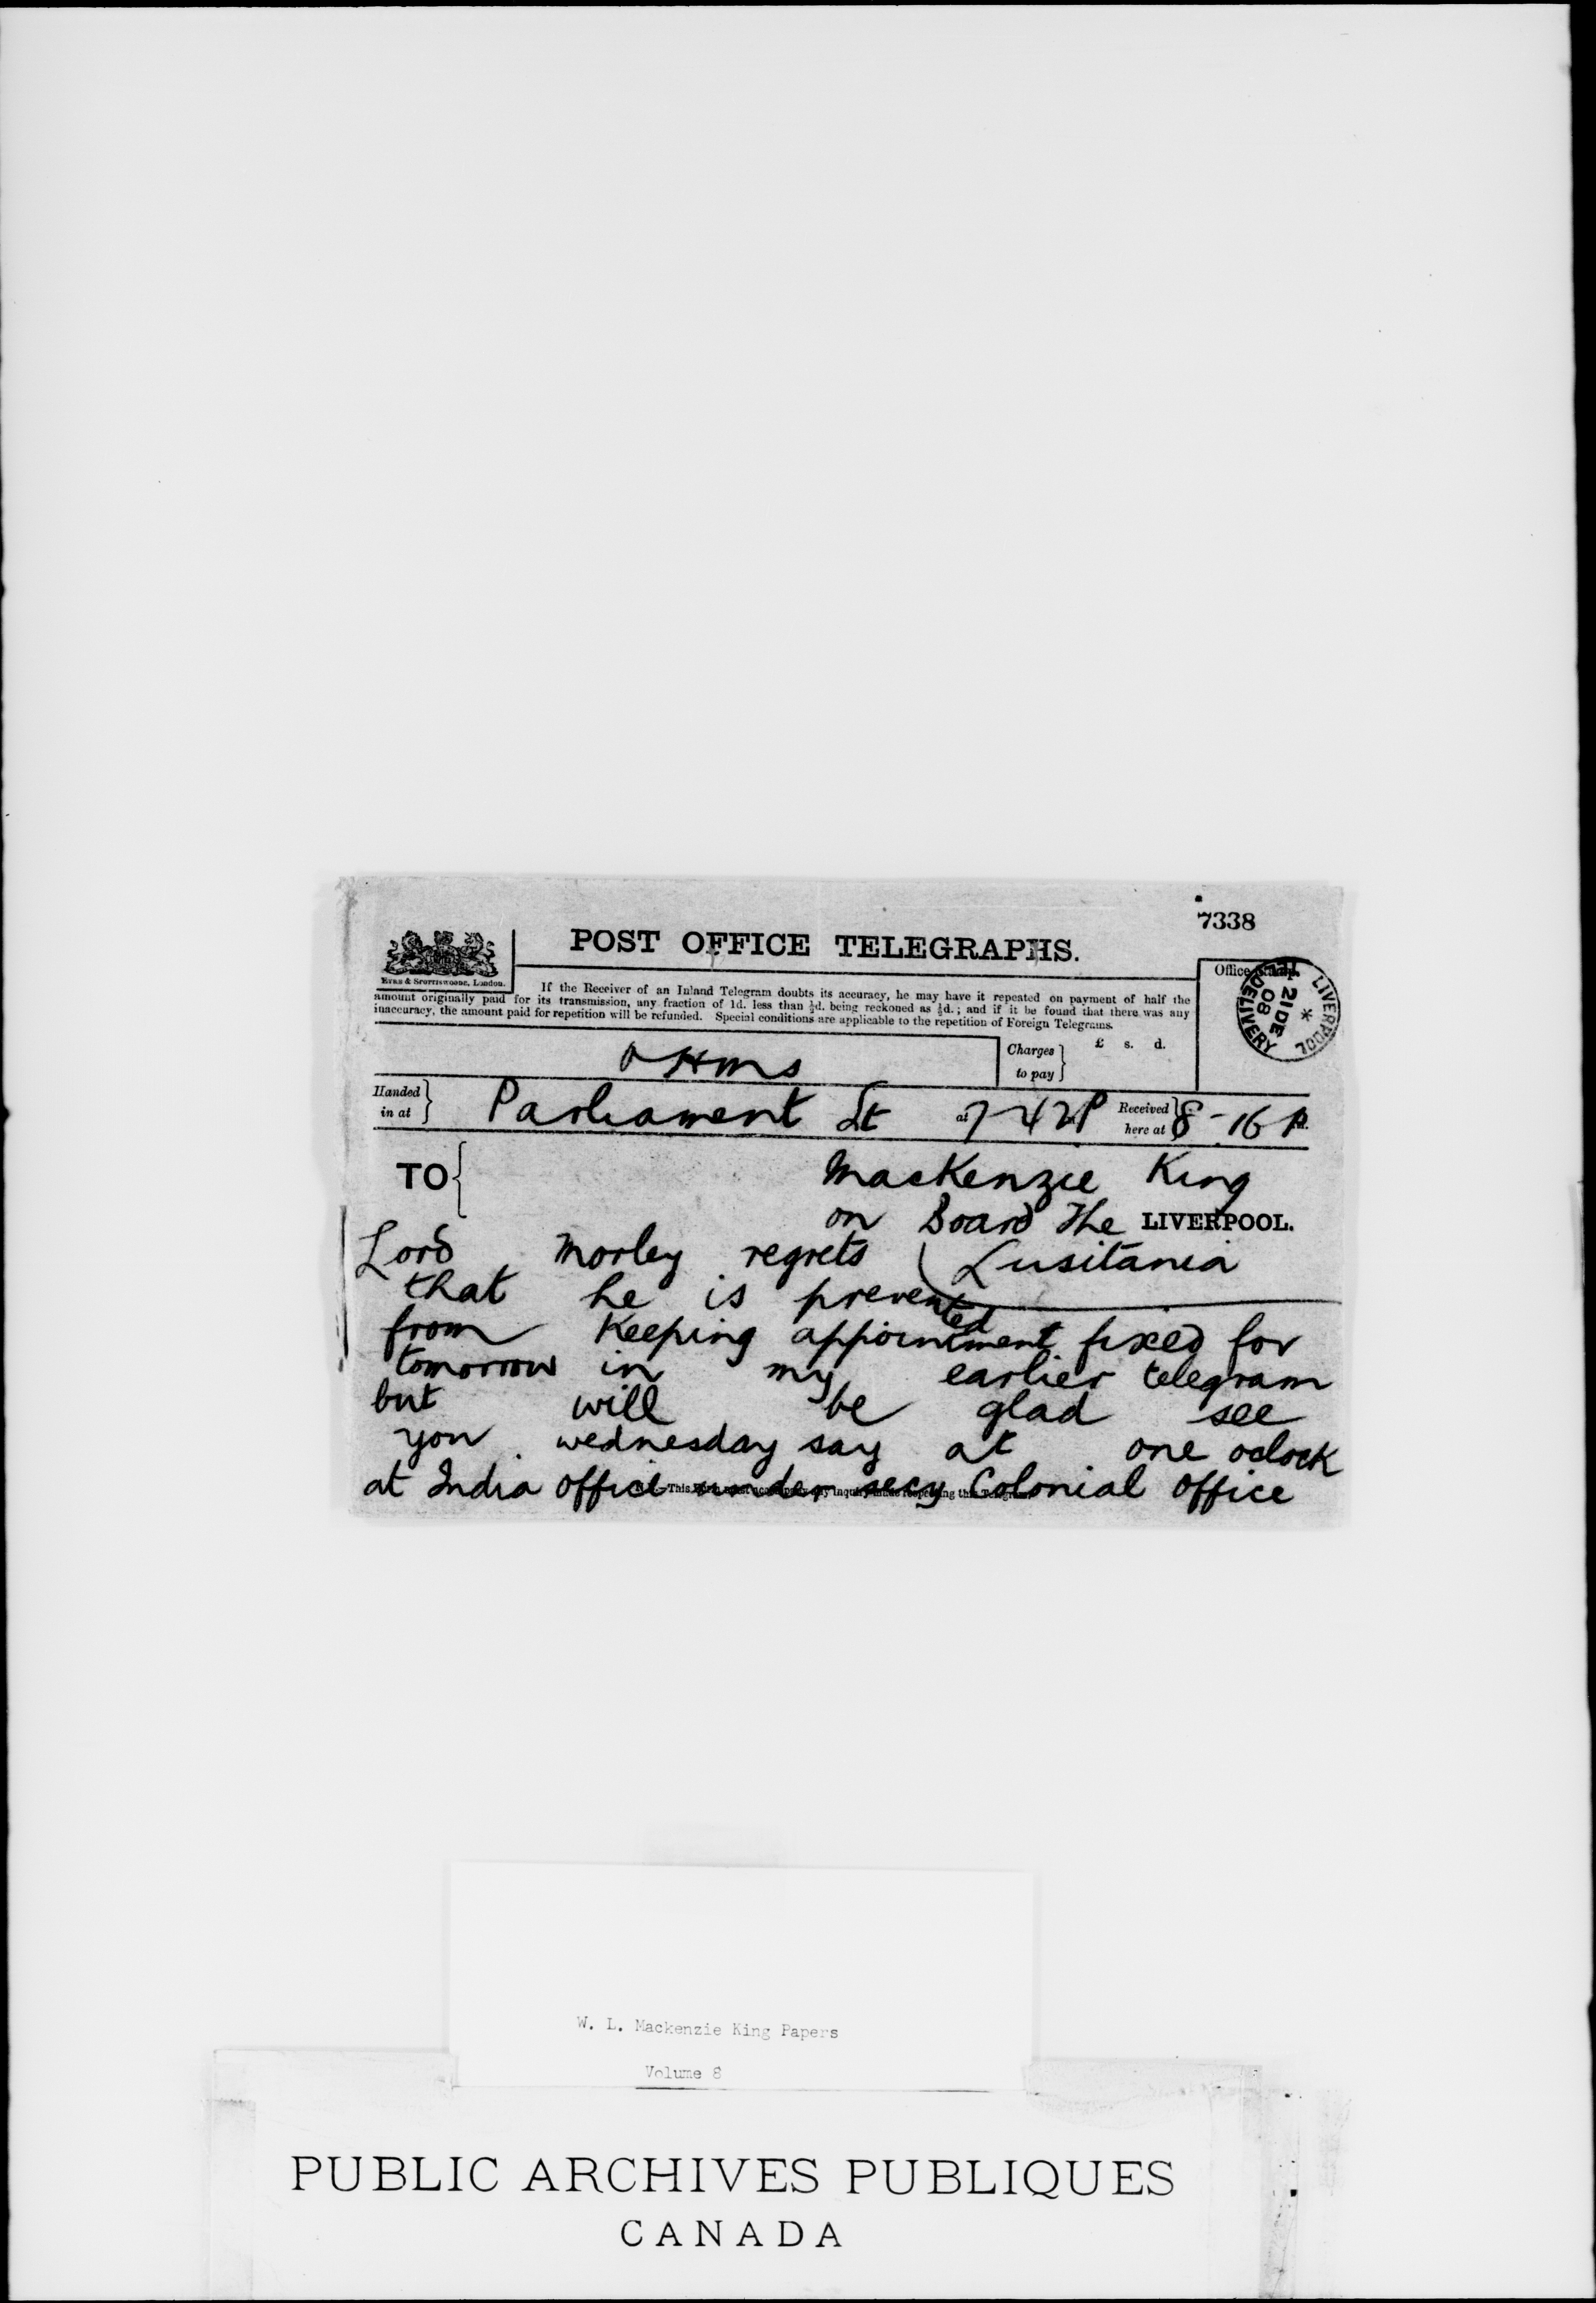 7338
POST OFFICE TELEGRAPHS.
EYRE & SPOTTISWOODE, London.
If the Receiver of an Inland Telegram doubts its accuracy, he may have it repeated on payment of half the
amount originally paid for its transmission, any fraction of 1d. less than ½d. being reckoned as ½d.; and if it be found that there was any
inaccuracy, the amount paid for repetition will be refunded. Special conditions are applicable to the repetition of Foreign Telegrams.
Office Stamp.
LIVERPOOL
21 DE
08
DELIVERY
OHMS
Charges to pay } £ s. d.
Handed in at } Parliament St at 7-42 P Received here at } 8-16 P
TO { Mackenzie King
on Board The LIVERPOOL.
Lusitania
Lord Morley regrets
that he is prevented
from Keeping appointment fixed for
tomorrow in my earlier telegram
but will be glad see
you wednesday say at one oclock
at India office under secy Colonial office
W. L. Mackenzie King Papers
Volume 8
PUBLIC ARCHIVES PUBLIQUES
CANADA